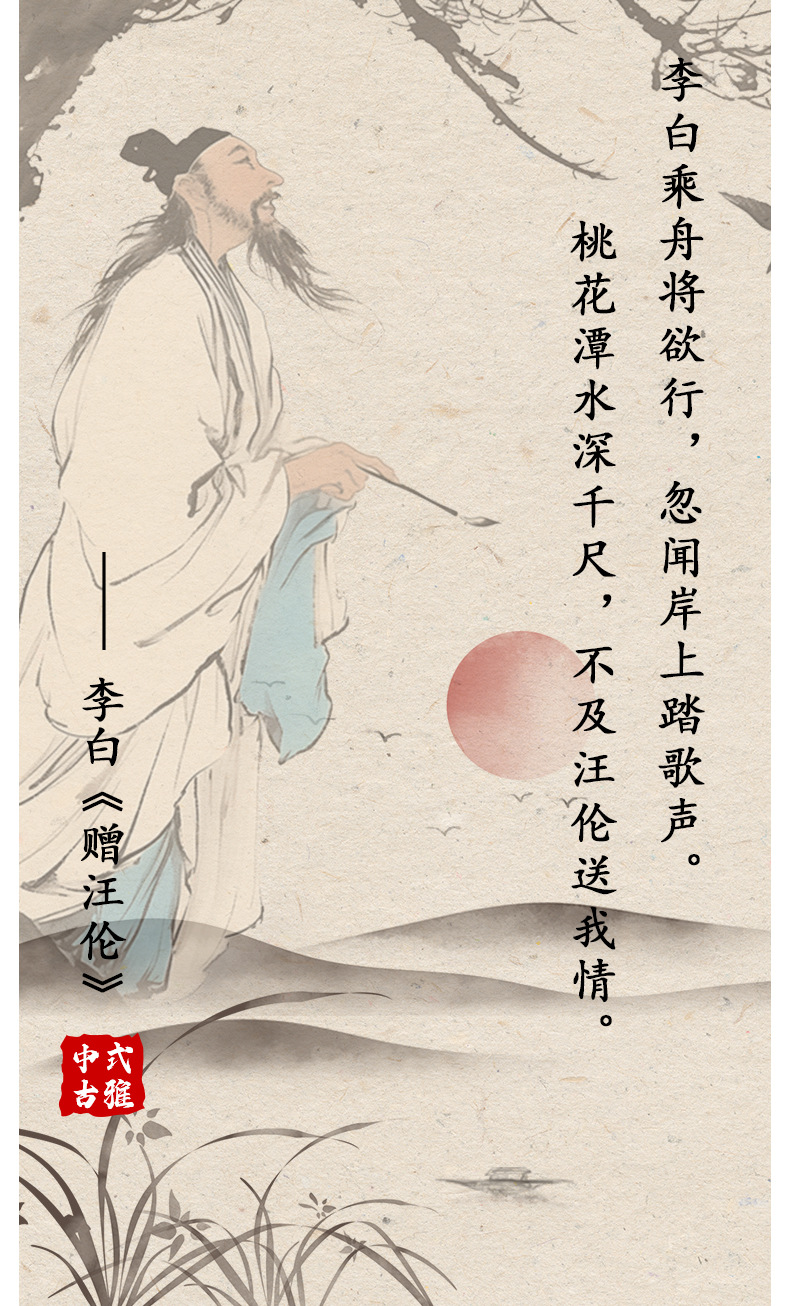 李白乘舟将欲行，忽闻岸上踏歌声。
桃花潭水深千尺，不及汪伦送我情。
——李白《赠汪伦》
中式
古雅